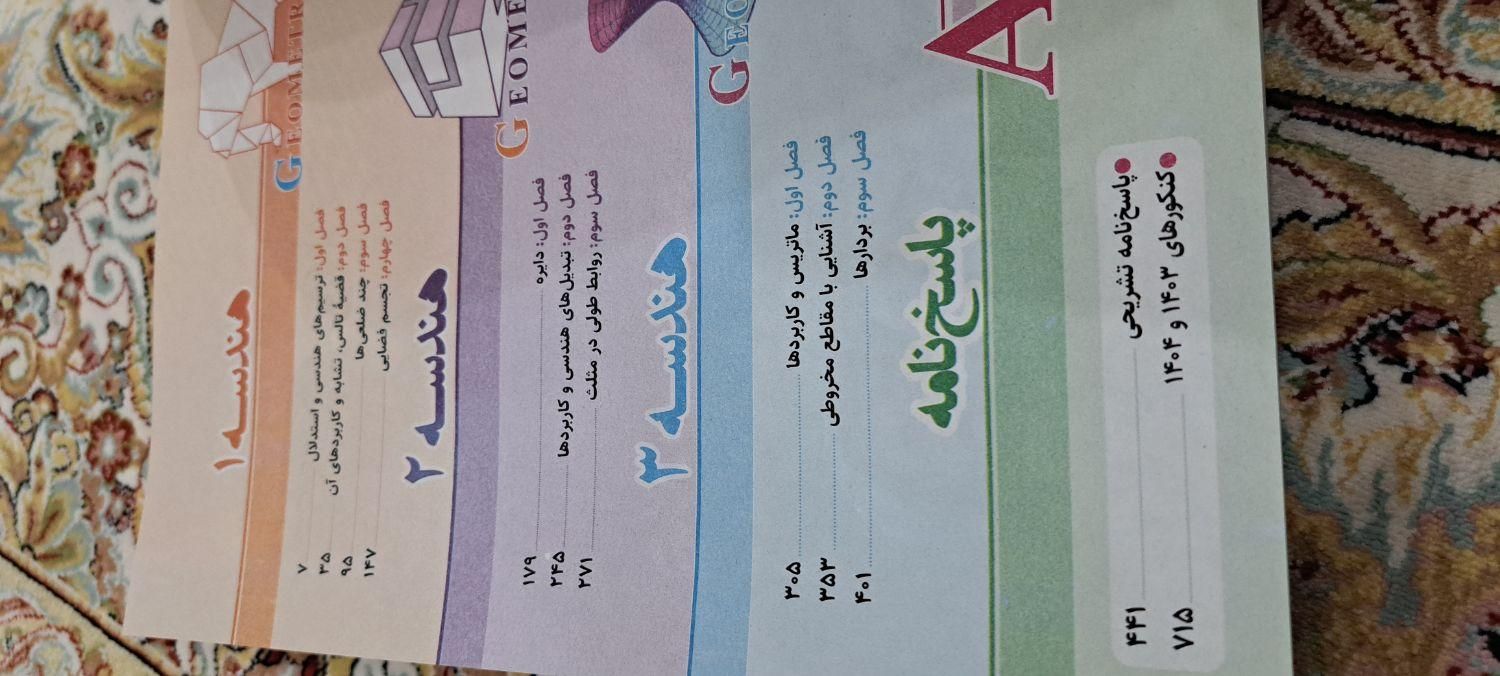 هندسه ۱
GEOMETR
فصل اول: ترسیم‌های هندسی و استدلال ۷
فصل دوم: قضیهٔ تالس، تشابه و کاربردهای آن ۳۵
فصل سوم: چند ضلعی‌ها ۹۵
فصل چهارم: تجسم فضایی ۱۴۷
هندسه ۲
GEOME
فصل اول: دایره ۱۷۹
فصل دوم: تبدیل‌های هندسی و کاربردها ۲۴۵
فصل سوم: روابط طولی در مثلث ۲۷۱
هندسه ۳
GEO
فصل اول: ماتریس و کاربردها ۳۰۵
فصل دوم: آشنایی با مقاطع مخروطی ۳۵۳
فصل سوم: بردارها ۴۰۱
پاسخ‌نامه
A
پاسخ‌نامه تشریحی ۴۴۱
کنکورهای ۱۴۰۳ و ۱۴۰۴ ۷۱۵